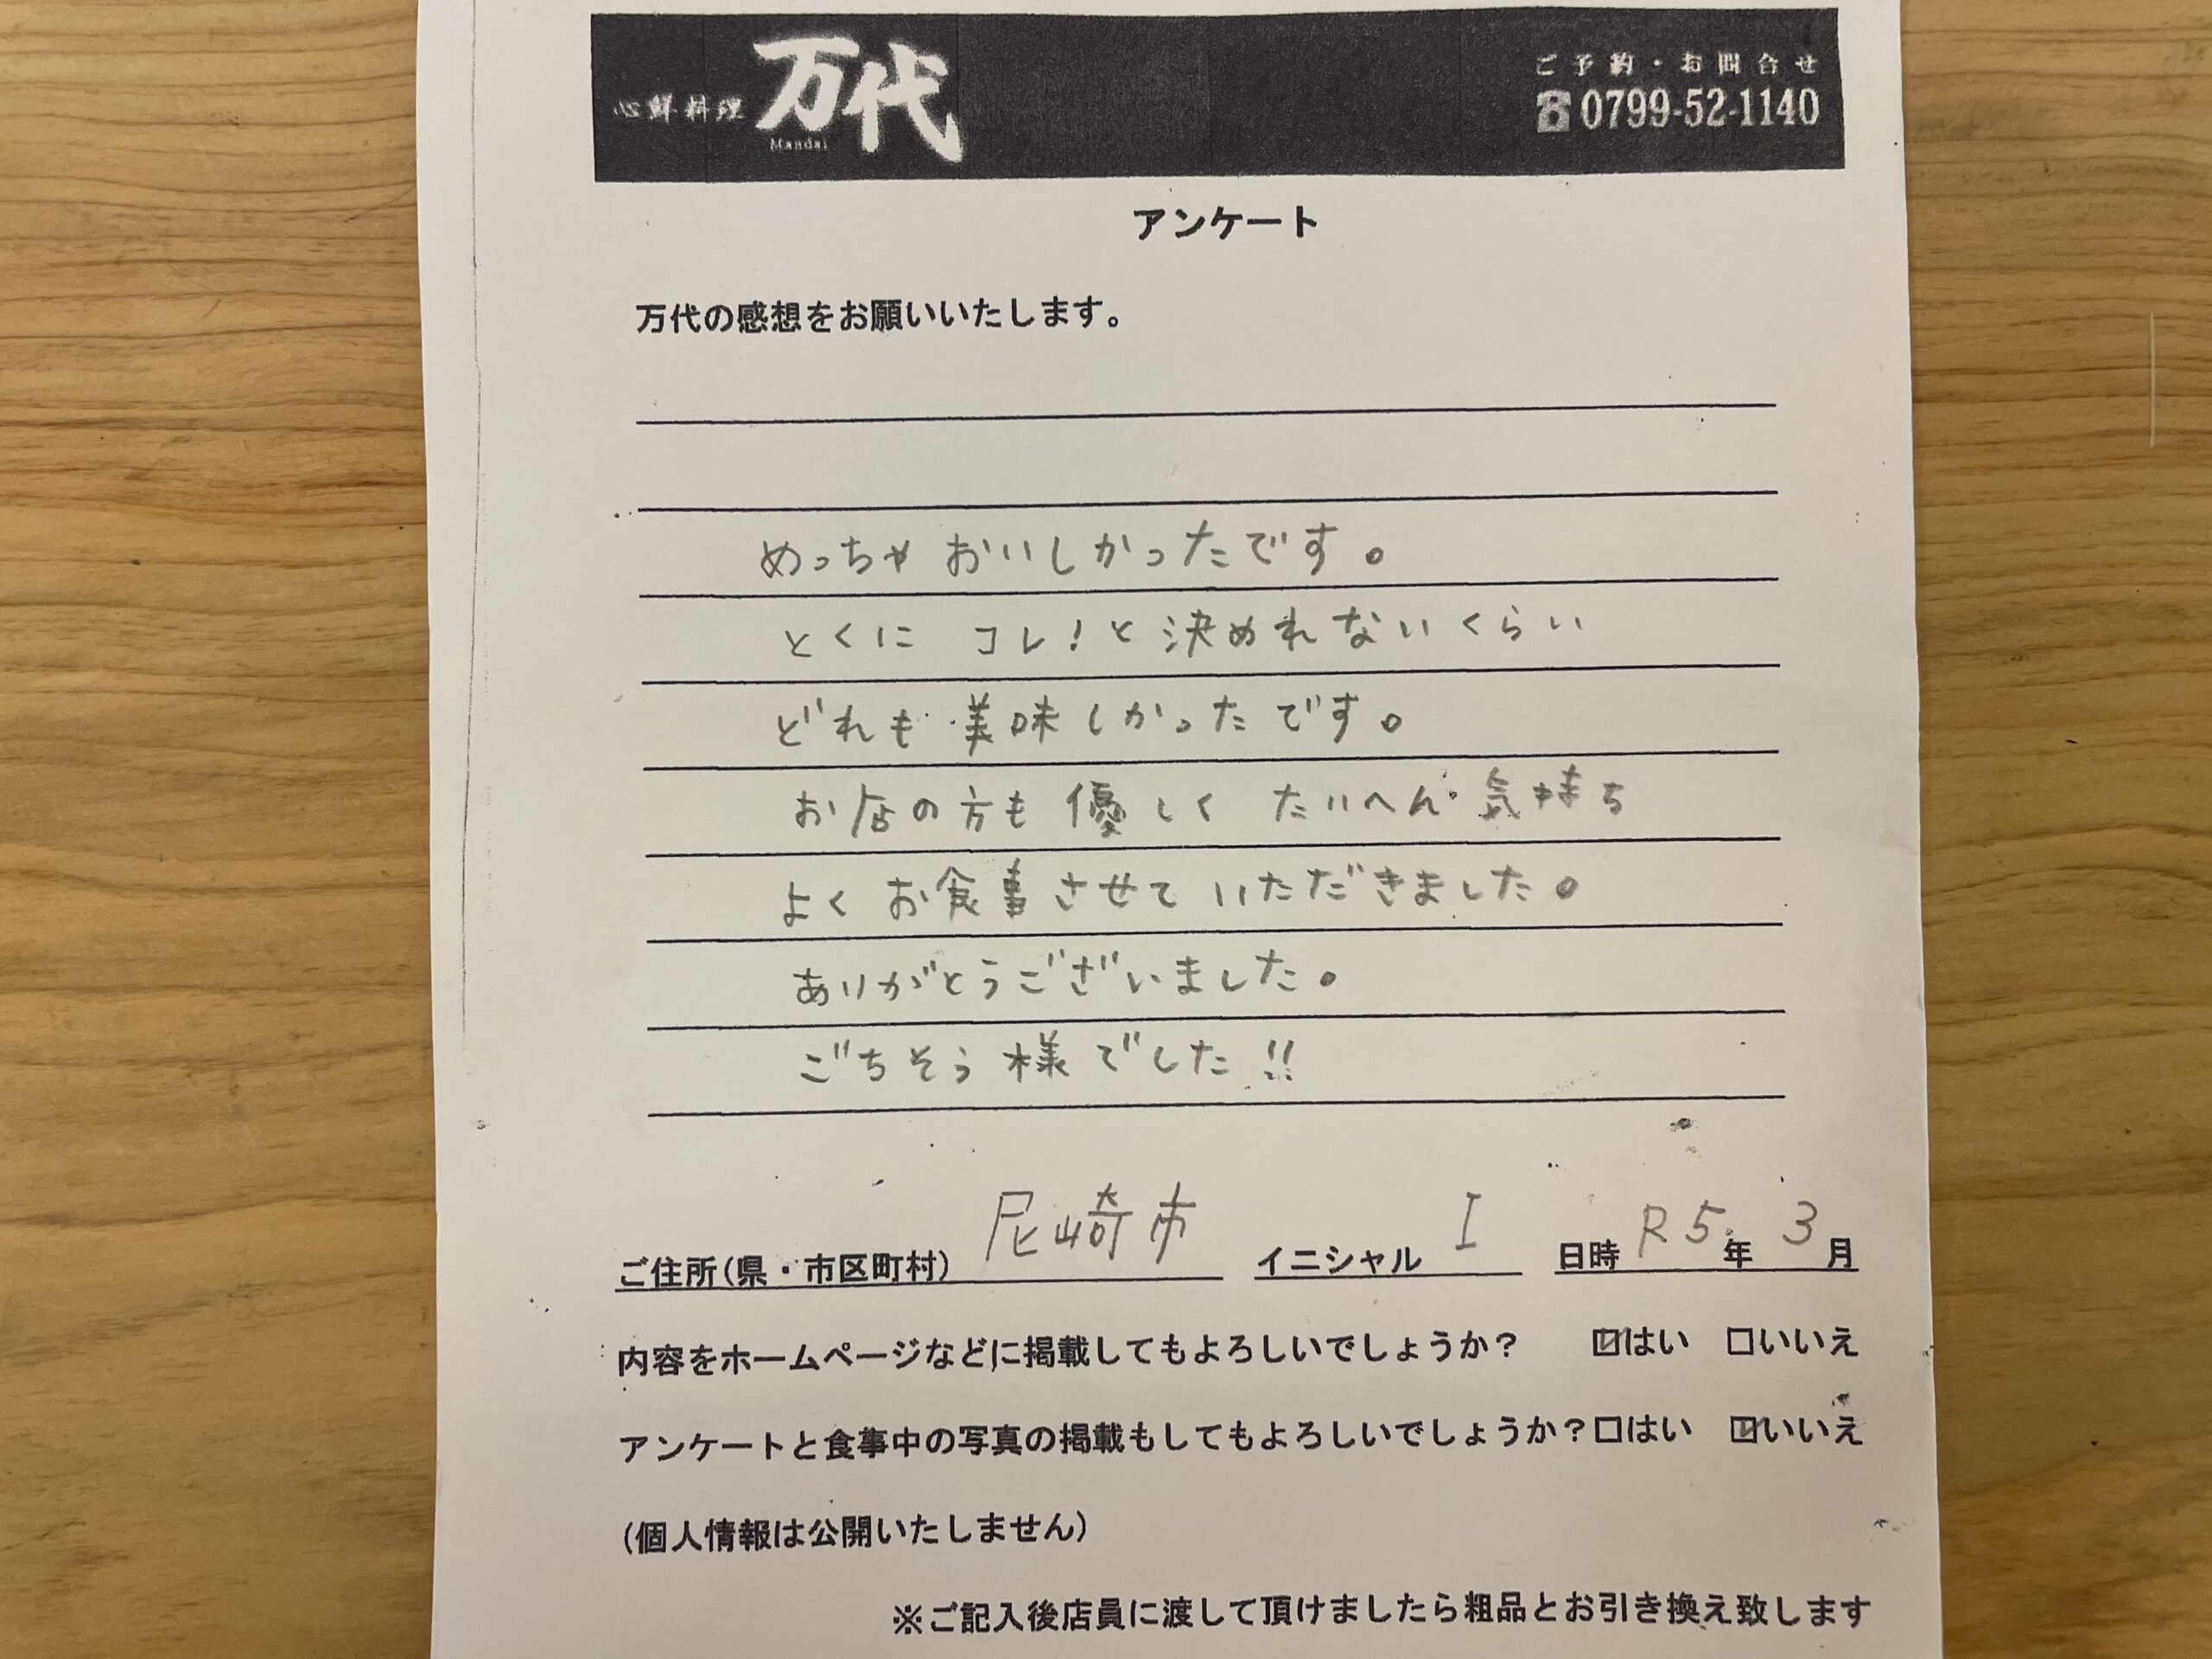 心鮮料理 万代
Mandai
ご予約・お問合せ
☎0799-52-1140
アンケート
万代の感想をお願いいたします。
めっちゃ おいしかったです。
とくに コレ!と決めれないくらい
どれも 美味しかったです。
お店の方も 優しく たいへん 気持ち
よく お食事させて いただきました。
ありがとうございました。
ごちそう様でした!!
ご住所(県・市区町村) 尼崎市 イニシャル I 日時 R5年 3月
内容をホームページなどに掲載してもよろしいでしょうか? ☑はい □いいえ
アンケートと食事中の写真の掲載もしてもよろしいでしょうか?□はい ☑いいえ
(個人情報は公開いたしません)
※ご記入後店員に渡して頂けましたら粗品とお引き換え致します